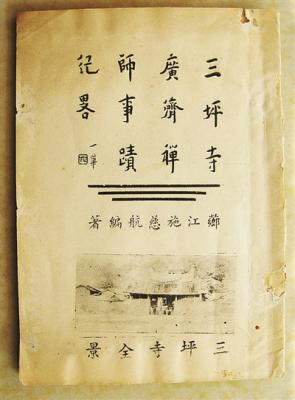 三坪寺
廣濟禪
師事蹟
紀畧
薌江施慈航編著
三坪寺全景